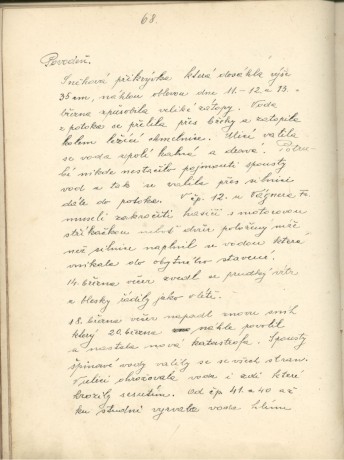 68.
Povodeň.
Sněhová přikrývka která dosáhla výše
35 cm, náhlou oblevou dne 11.-12. a 13.
března způsobila veliké zátopy. Voda
z potoka se přelila přes břehy a zatopila
kolem ležící chmelnice. Ulicí valila
se voda z polí kalná a dravá. Potru-
bí nikde nestačilo pojmouti spousty
vod a tak se valila přes silnice
dále do potoka. V čp. 12. u Vágnera Fr.
museli zakročiti hasiči s motorovou
stříkačkou neboť dvůr položený níže
než silnice naplnil se vodou která
vnikala do obytného stavení.
14. března večer zvedl se prudký vítr
a blesky řádily jako v létě.
18. března večer napadl znovu sníh
který 20. března náhle povolil
a nastala nová katastrofa. Spousty
špinavé vody valily se se všech stran.
V ulici ohrožovala voda i zdi které
hrozily sesutím. Od čp. 41. a 40 až
ku studni vyrvala voda hlínu